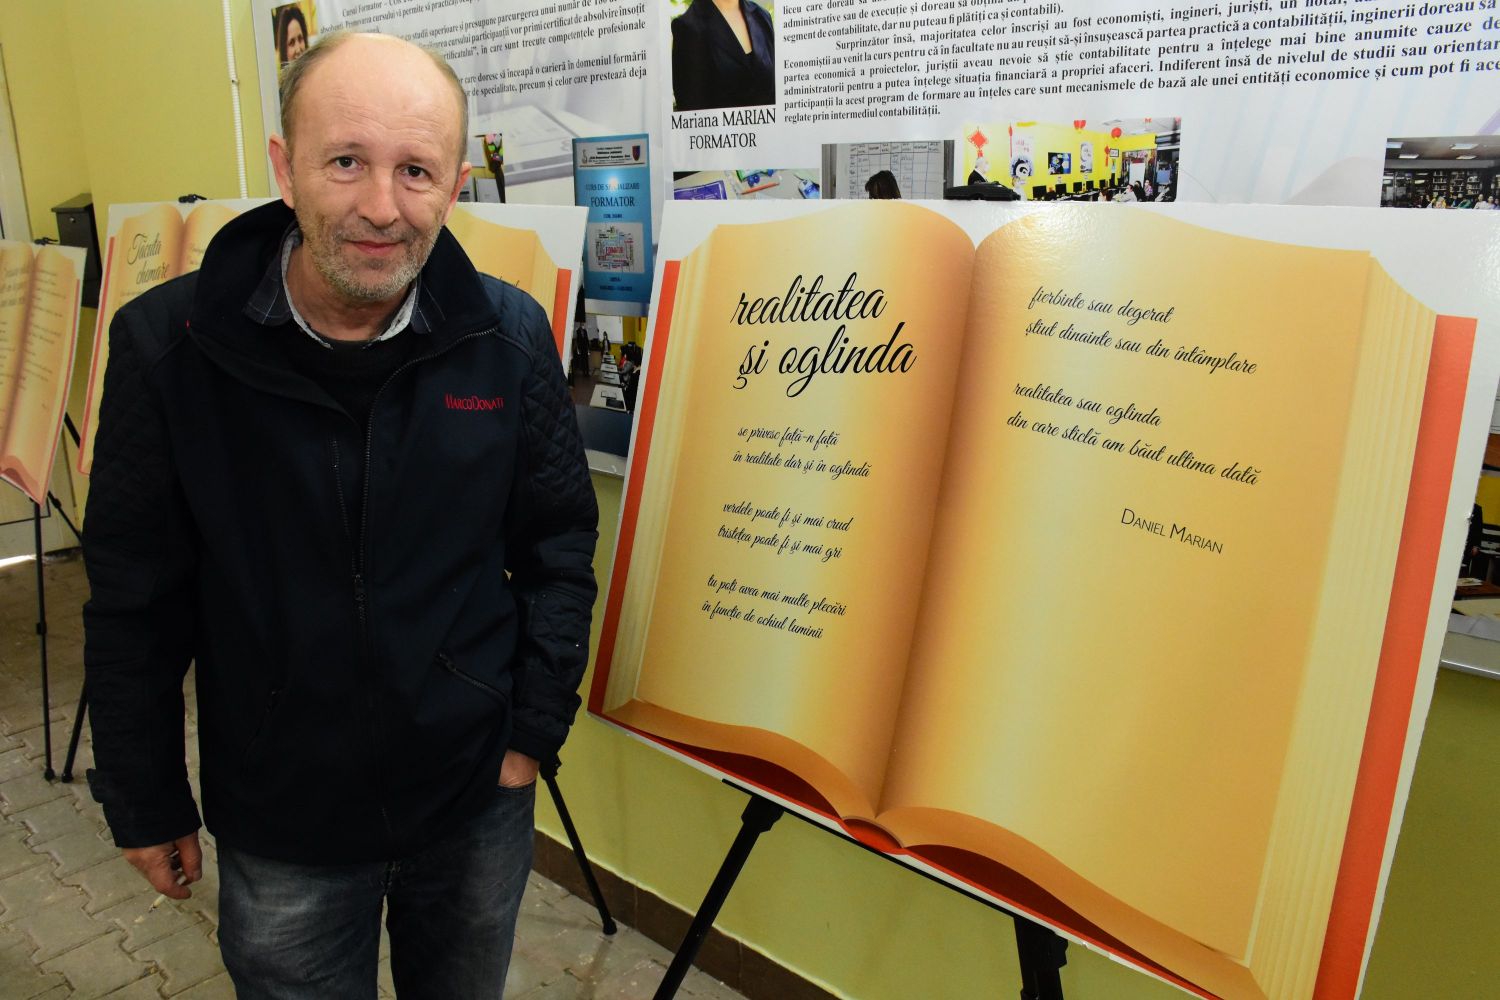 Cursul Formator – COR
absolvenți. Promovarea cursului vă permite să practicați
cu studii superioare și presupune parcurgerea unui număr de 180 de
participanții vor primi certificat de absolvire însoțit
certificatului”, în care sunt trecute competențele profesionale
care doresc să înceapă o carieră în domeniul formării
de specialitate, precum și celor care prestează deja
Mariana MARIAN
FORMATOR
administrative sau de execuție și doreau să
segment de contabilitate, dar nu puteau fi plătiți ca și contabili).
Surprinzător însă, majoritatea celor înscriși au fost economiști, ingineri, juriști, un notar,
Economiștii au venit la curs pentru că în facultate nu au reușit să-și însușească partea practică a contabilității, inginerii doreau să
partea economică a proiectelor, juriștii aveau nevoie să știe contabilitate pentru a înțelege mai bine anumite cauze de
administratorii pentru a putea înțelege situația financiară a propriei afaceri. Indiferent însă de nivelul de studii sau
participanții la acest program de formare au înțeles care sunt mecanismele de bază ale unei entități economice și cum pot fi
reglate prin intermediul contabilității.
CURS DE SPECIALIZARE
FORMATOR
Tăcuta
chemare
MARCODONATI
realitatea
și oglinda
se privesc față-n față
în realitate dar și în oglindă
verdele poate fi și mai crud
tristețea poate fi și mai gri
tu poți avea mai multe plecări
în funcție de ochiul luminii
fierbinte sau degerat
știut dinainte sau din întâmplare
realitatea sau oglinda
din care sticlă am băut ultima dată
DANIEL MARIAN